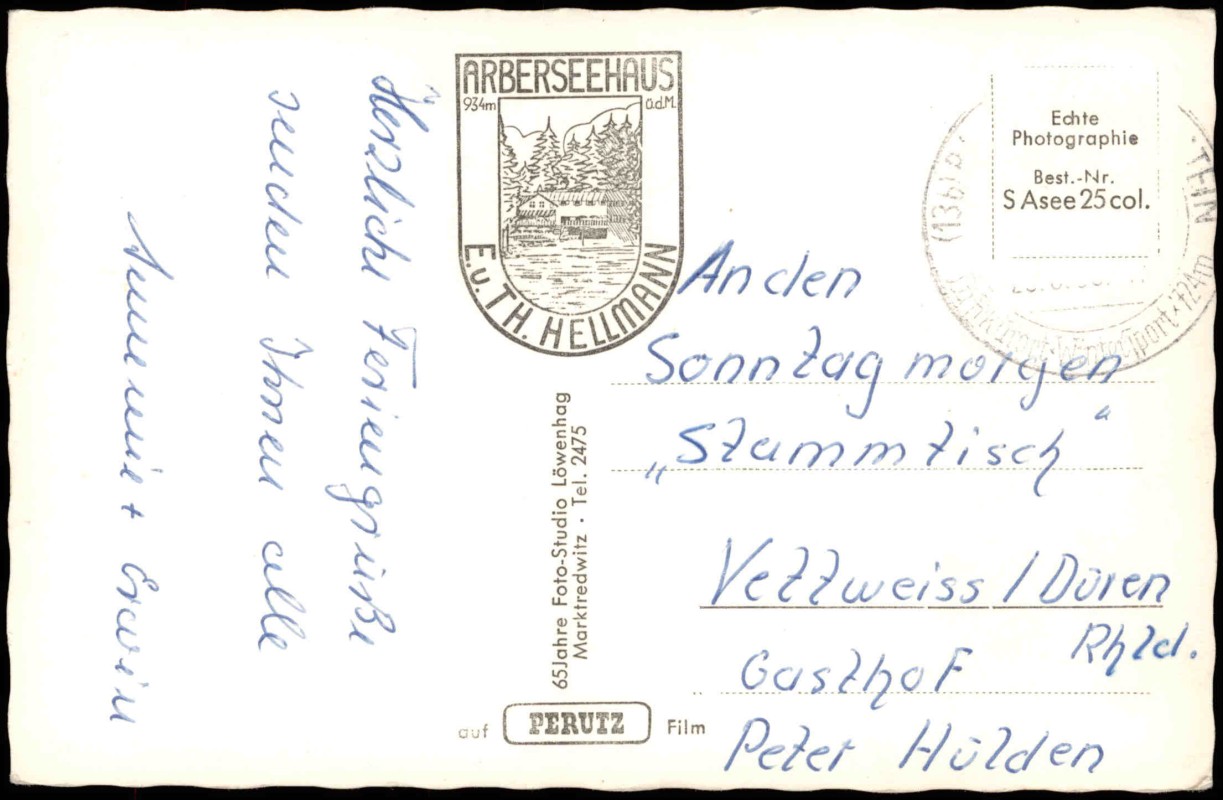 Herzliche Feriengrüße
senden Ihnen alle
Annemie + Erwin
ARBERSEEHAUS
934m ü.d.M.
E. u. TH. HELLMANN
65 Jahre Foto-Studio Löwenhag
Marktredwitz · Tel. 2475
auf PERUTZ Film
Echte
Photographie
Best.-Nr.
S Asee 25 col.
(13b)
Wintersport · 724m
An den
Sonntag morgen
„Stammtisch“
Vettweiss / Düren
Rhld.
Gasthof
Peter Hülden